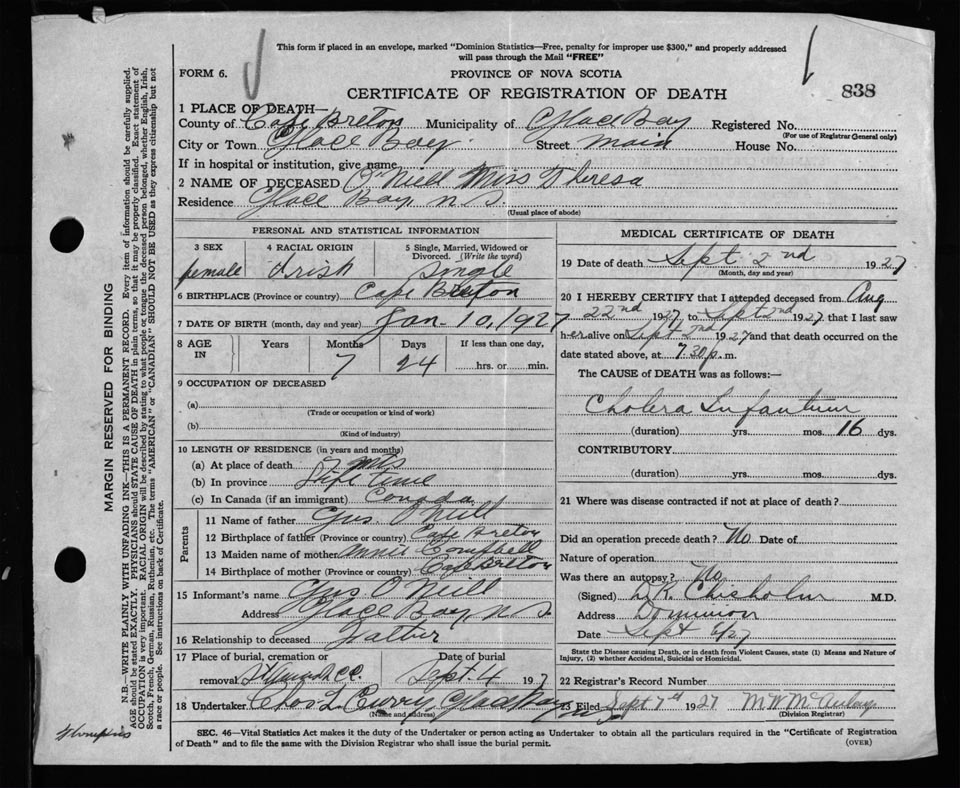 This form if placed in an envelope, marked "Dominion Statistics—Free, penalty for improper use $300," and properly addressed
will pass through the Mail "FREE"
FORM 6. PROVINCE OF NOVA SCOTIA
CERTIFICATE OF REGISTRATION OF DEATH 838
1 PLACE OF DEATH—
County of Cape Breton Municipality of Glace Bay Registered No.
(For use of Registrar General only)
City or Town Glace Bay Street Main House No.
If in hospital or institution, give name
2 NAME OF DECEASED O'Niell Miss Theresa
Residence Glace Bay, N.S.
(Usual place of abode)
PERSONAL AND STATISTICAL INFORMATION
3 SEX 4 RACIAL ORIGIN 5 Single, Married, Widowed or
Divorced. (Write the word)
female Irish Single
6 BIRTHPLACE (Province or country) Cape Breton
7 DATE OF BIRTH (month, day and year) Jan. 10, 1927
8 AGE IN Years Months Days If less than one day,
7 24 hrs. or min.
9 OCCUPATION OF DECEASED
(a)
(Trade or occupation or kind of work)
(b)
(Kind of industry)
10 LENGTH OF RESIDENCE (in years and months)
(a) At place of death 7 mts
(b) In province Life time
(c) In Canada (if an immigrant) Canada
Parents
11 Name of father Gus. O'Niell
12 Birthplace of father (Province or country) Cape Breton
13 Maiden name of mother Annie Campbell
14 Birthplace of mother (Province or country) Cape Breton
15 Informant's name Gus O'Niell
Address Glace Bay, N.S.
16 Relationship to deceased Father
17 Place of burial, cremation or Date of burial
removal Sept. 4 1927
18 Undertaker Chas L. Curry, Glace Bay N.S.
(Name and address)
MEDICAL CERTIFICATE OF DEATH
19 Date of death Sept 2nd 1927
(Month, day and year)
20 I HEREBY CERTIFY that I attended deceased from Aug
22nd 1927 to Sept 2nd 1927, that I last saw
h-er alive on Sept 2nd 1927 and that death occurred on the
date stated above, at 7.30 p.m.
The CAUSE of DEATH was as follows:—
Cholera Infantum
(duration) yrs. mos. 16 dys.
CONTRIBUTORY
(duration) yrs. mos. dys.
21 Where was disease contracted if not at place of death?
Did an operation precede death? No Date of
Nature of operation
Was there an autopsy? No
(Signed) D.K. Chisholm M.D.
Address Dominion
Date Sept 6/27
State the Disease causing Death, or in death from Violent Causes, state (1) Means and Nature of
Injury, (2) whether Accidental, Suicidal or Homicidal.
22 Registrar's Record Number
23 Filed Sept 7th 1927 M W McAulay
(Division Registrar)
SEC. 46—Vital Statistics Act makes it the duty of the Undertaker or person acting as Undertaker to obtain all the particulars required in the "Certificate of Registration
of Death" and to file the same with the Division Registrar who shall issue the burial permit. (OVER)
MARGIN RESERVED FOR BINDING
N.B.—WRITE PLAINLY WITH UNFADING INK—THIS IS A PERMANENT RECORD. Every item of information should be carefully supplied.
AGE should be stated EXACTLY. PHYSICIANS should STATE CAUSE OF DEATH in plain terms, so that it may be properly classified. Exact statement of
OCCUPATION is very important. RACIAL ORIGIN will be described by stating to what people or tongue the deceased person belonged, whether English, Irish,
Scotch, French, German, Russian, Ruthenian, etc. The terms "AMERICAN" or "CANADIAN" SHOULD NOT BE USED as they express citizenship but not
a race or people. See instructions on back of Certificate.